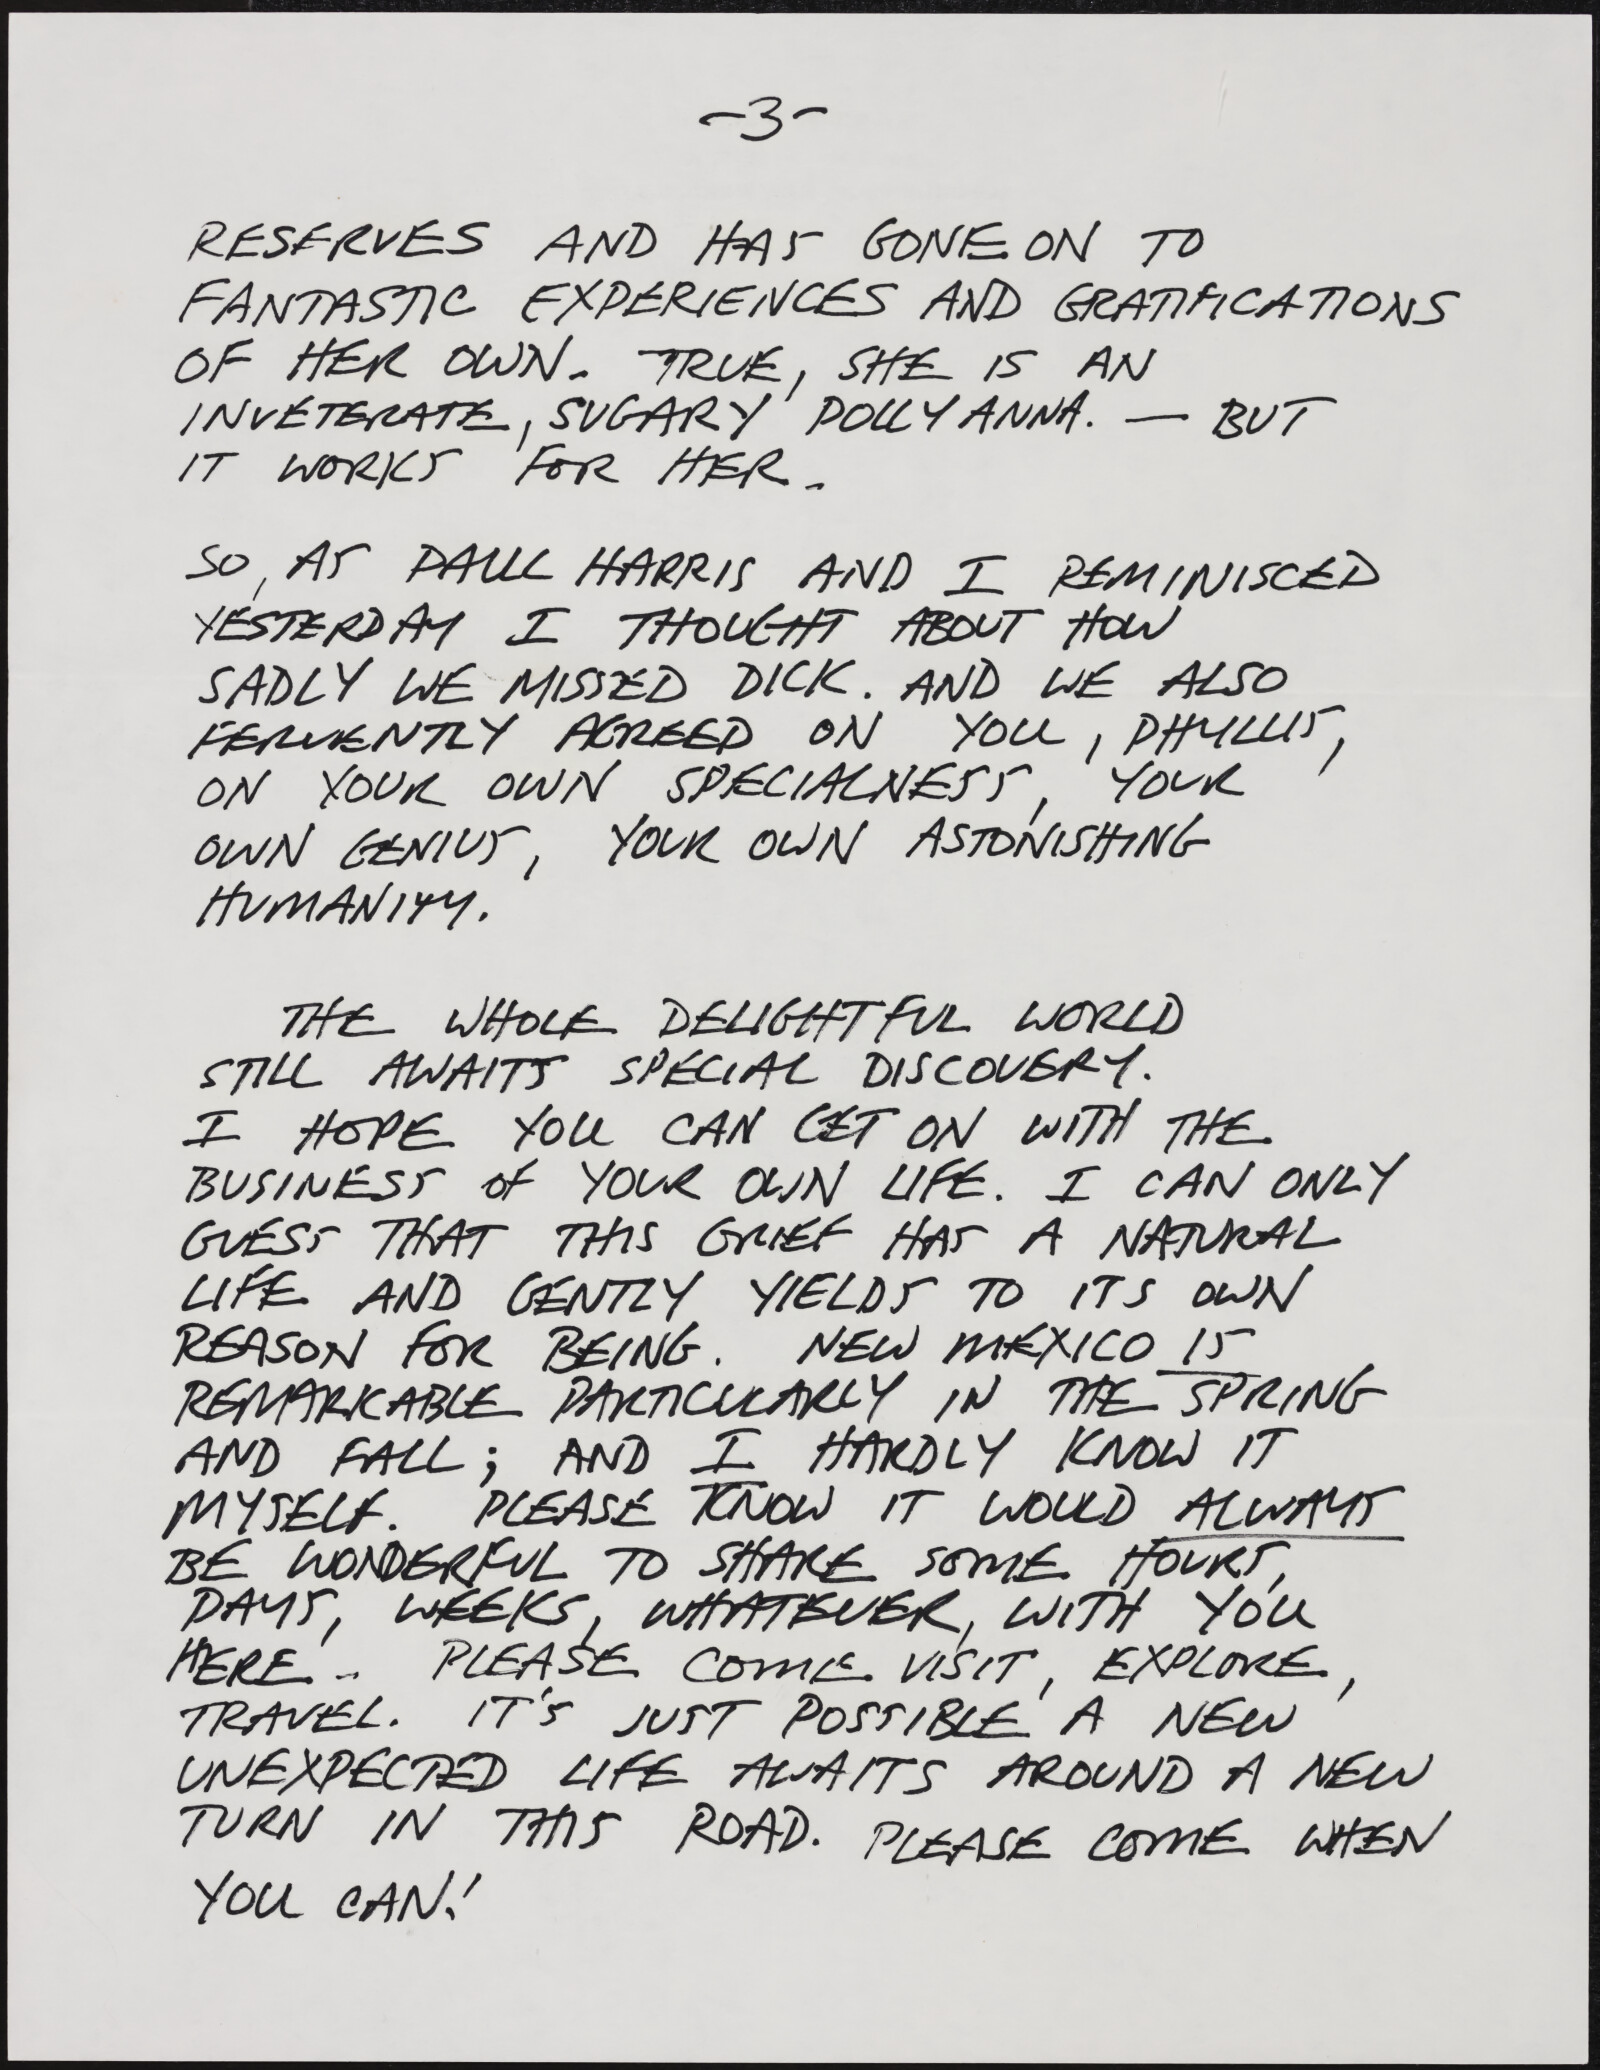 -3-
RESERVES AND HAS GONE ON TO
FANTASTIC EXPERIENCES AND GRATIFICATIONS
OF HER OWN. TRUE, SHE IS AN
INVETERATE, SUGARY POLLYANNA. — BUT
IT WORKS FOR HER.
SO, AS PAUL HARRIS AND I REMINISCED
YESTERDAY I THOUGHT ABOUT HOW
SADLY WE MISSED DICK. AND WE ALSO
FERVENTLY AGREED ON YOU, PHYLLIS,
ON YOUR OWN SPECIALNESS, YOUR
OWN GENIUS, YOUR OWN ASTONISHING
HUMANITY.
THE WHOLE DELIGHTFUL WORLD
STILL AWAITS SPECIAL DISCOVERY.
I HOPE YOU CAN GET ON WITH THE
BUSINESS of YOUR OWN LIFE. I CAN ONLY
GUESS THAT THIS GRIEF HAS A NATURAL
LIFE AND GENTLY YIELDS TO ITS OWN
REASON FOR BEING. NEW MEXICO IS
REMARKABLE PARTICULARLY IN THE SPRING
AND FALL; AND I HARDLY KNOW IT
MYSELF. PLEASE KNOW IT WOULD ALWAYS
BE WONDERFUL TO SHARE SOME HOURS,
DAYS, WEEKS, WHATEVER, WITH YOU
HERE. PLEASE COME VISIT, EXPLORE,
TRAVEL. IT'S JUST POSSIBLE A NEW
UNEXPECTED LIFE AWAITS AROUND A NEW
TURN IN THIS ROAD. PLEASE COME WHEN
YOU CAN!